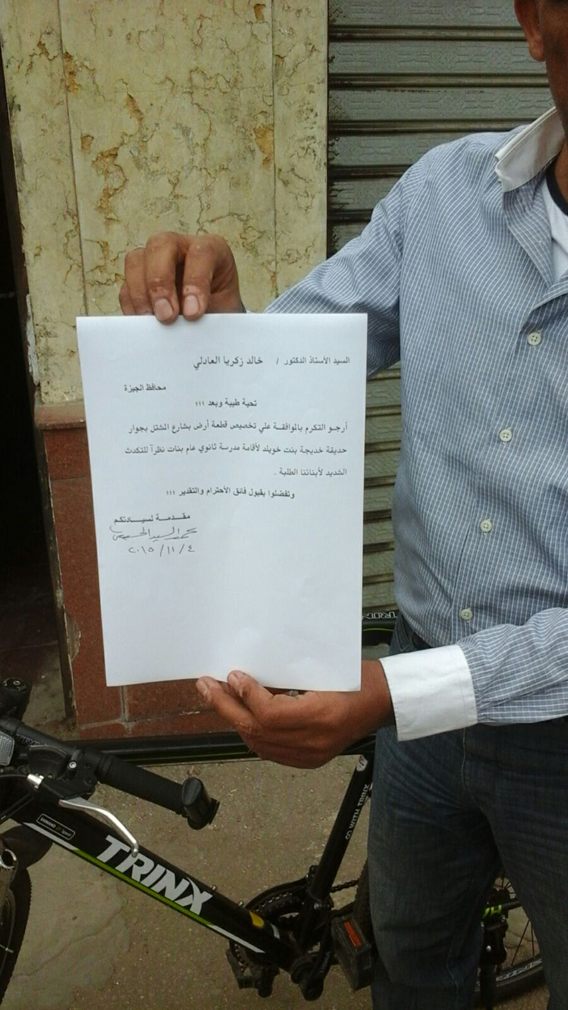 السيد الأستاذ الدكتور / خالد زكريا العادلي
محافظ الجيزة
تحية طيبة وبعد ،،،
أرجو التكرم بالموافقة علي تخصيص قطعة أرض بشارع المشتل بجوار
حديقة خديجة بنت خويلد لأقامة مدرسة ثانوي عام بنات نظراً للتكدث
الشديد لأبنائنا الطلبة .
وتفضلوا بقبول فائق الأحترام والتقدير ،،،
مقدمة لسيادتكم
محمد السيد
٢٠١٥/١١/٤
TRINX
WITH TRINX